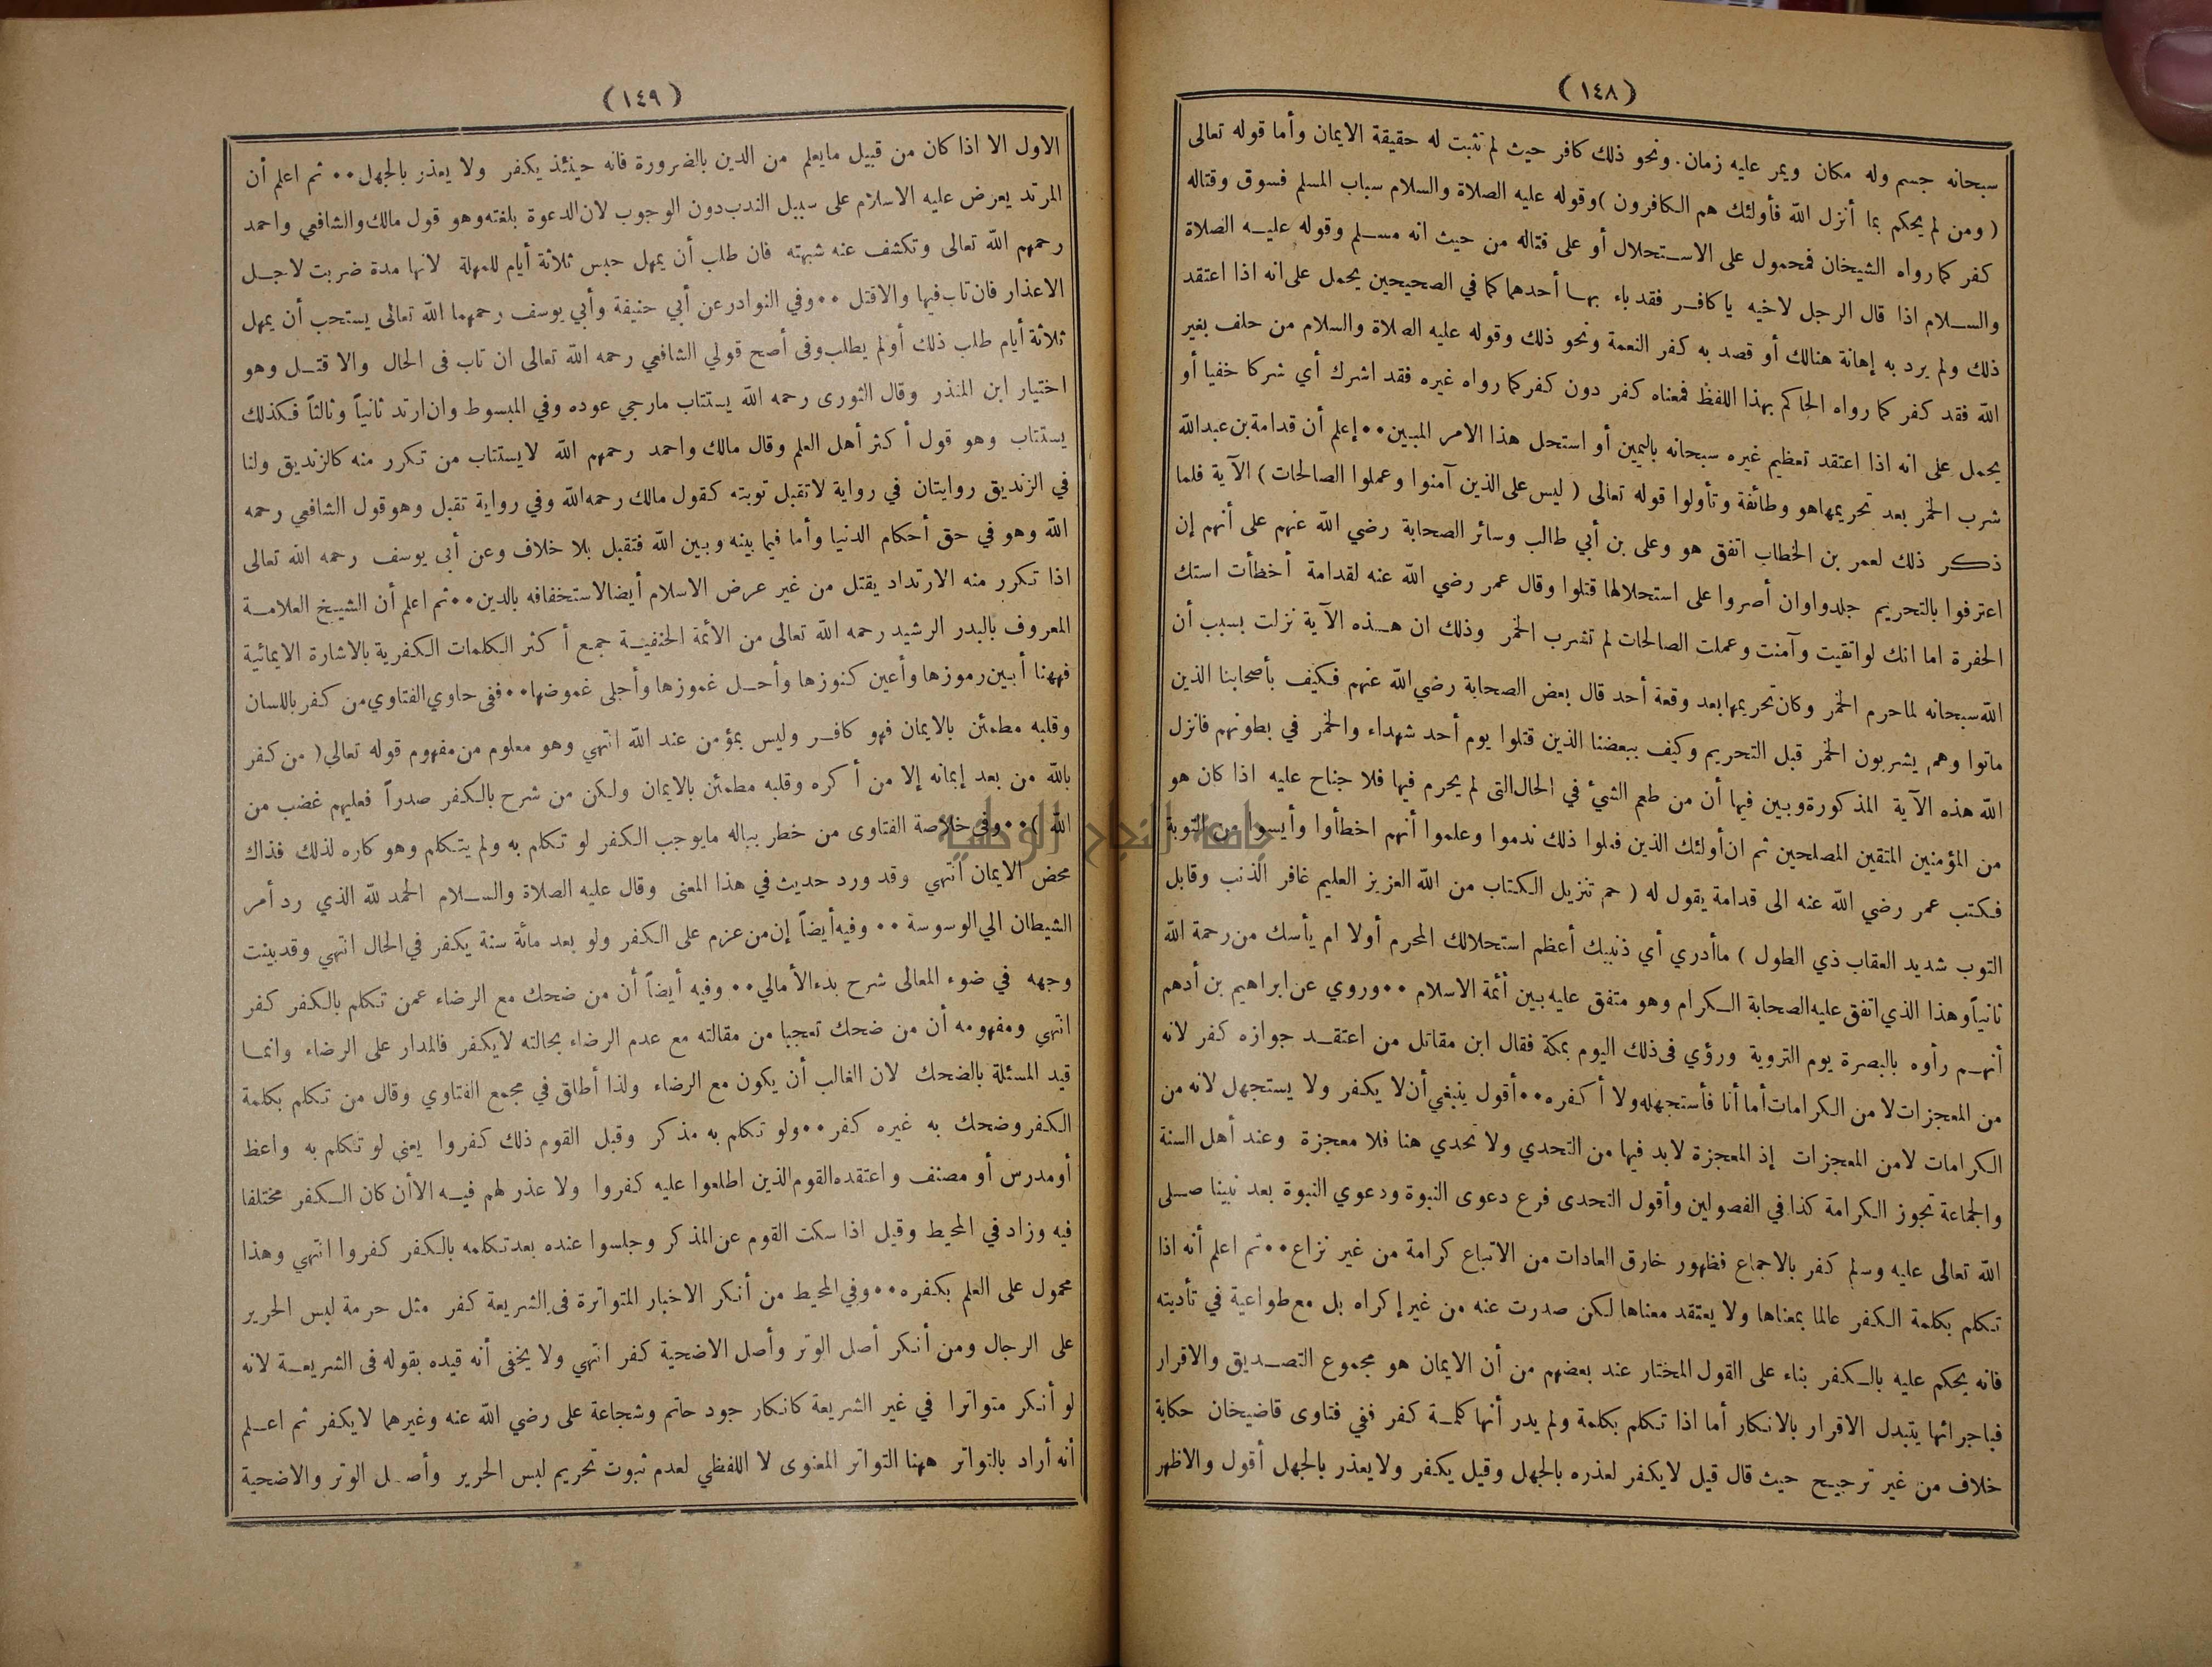 (١٤٨)
سبحانه جسم وله مكان ويمر عليه زمان. ونحو ذلك كافر حيث لم تثبت له حقيقة الايمان وأما قوله تعالى
( ومن لم يحكم بما أنزل الله فأولئك هم الكافرون )وقوله عليه الصلاة والسلام سباب المسلم فسوق وقتاله
كفر كما رواه الشيخان فمحمول على الاستحلال أو على قتاله من حيث انه مسلم وقوله عليه الصلاة
والسلام اذا قال الرجل لاخيه ياكافر فقد باء بها أحدهما كما في الصحيحين يحمل على انه اذا اعتقد
ذلك ولم يرد به إهانة هنالك أو قصد به كفر النعمة ونحو ذلك وقوله عليه الصلاة والسلام من حلف بغير
الله فقد كفر كما رواه الحاكم بهذا اللفظ فمعناه كفر دون كفر كما رواه غيره فقد اشرك أي شركا خفيا أو
يحمل على انه اذا اعتقد تعظيم غيره سبحانه باليمين أو استحل هذا الامر المبين ٠٠ إعلم أن قدامة بن عبدالله
شرب الخمر بعد تحريمهاهو وطائفة وتأولوا قوله تعالى ( ليس على الذين آمنوا وعملوا الصالحات ) الآية فلما
ذكر ذلك لعمر بن الخطاب اتفق هو وعلى بن أبي طالب وسائر الصحابة رضي الله عنهم على أنهم إن
اعترفوا بالتحريم جلدواوان أصروا على استحلالها قتلوا وقال عمر رضي الله عنه لقدامة أخطأت استك
الحفرة اما انك لواتقيت وآمنت وعملت الصالحات لم تشرب الخمر وذلك ان هذه الآية نزلت بسبب أن
الله سبحانه لما حرم الخمر وكان تحريمها بعد وقعة أحد قال بعض الصحابة رضي الله عنهم فكيف بأصحابنا الذين
ماتوا وهم يشربون الخمر قبل التحريم وكيف ببعضنا الذين قتلوا يوم أحد شهداء والخمر في بطونهم فانزل
الله هذه الآية المذكورة وبين فيها أن من طعم الشيء في الحال التى لم يحرم فيها فلا جناح عليه اذا كان هو
من المؤمنين المتقين المصلحين ثم ان أولئك الذين فعلوا ذلك ندموا وعلموا أنهم اخطأوا وأيسوا من التوبة
فكتب عمر رضي الله عنه الى قدامة يقول له ( حم تنزيل الكتاب من الله العزيز العليم غافر الذنب وقابل
التوب شديد العقاب ذي الطول ) ماأدري أي ذنبيك أعظم استحلالك المحرم أولا ام يأسك من رحمة الله
ثانيا وهذا الذي اتفق عليه الصحابة الكرام وهو متفق عليه بين أئمة الاسلام ٠٠ وروي عن ابراهيم بن أدهم
أنهم رأوه بالبصرة يوم التروية ورؤي فى ذلك اليوم بمكة فقال ابن مقاتل من اعتقد جوازه كفر لانه
من المعجزات لا من الكرامات أما أنا فأستجهله ولا أكفره ٠٠ أقول ينبغي أن لا يكفر ولا يستجهل لانه من
الكرامات لامن المعجزات إذ المعجزة لابد فيها من التحدي ولا تحدي هنا فلا معجزة وعند أهل السنة
والجماعة تجوز الكرامة كذا في الفصولين وأقول التحدى فرع دعوى النبوة ودعوي النبوة بعد نبينا صلى
الله تعالى عليه وسلم كفر بالاجماع فظهور خارق العادات من الاتباع كرامة من غير نزاع ٠٠ ثم اعلم أنه اذا
تكلم بكلمة الكفر عالما بمعناها ولا يعتقد معناها لكن صدرت عنه من غير إكراه بل مع طواعية في تأديته
فانه يحكم عليه بالكفر بناء على القول المختار عند بعضهم من أن الايمان هو مجموع التصديق والاقرار
فباجرائها يتبدل الاقرار بالانكار أما اذا تكلم بكلمة ولم يدر أنها كلمة كفر ففي فتاوى قاضيخان حكاية
خلاف من غير ترجيح حيث قال قيل لايكفر لعذره بالجهل وقيل يكفر ولايعذر بالجهل أقول والاظهر
(١٤٩)
الاول الا اذا كان من قبيل مايعلم من الدين بالضرورة فانه حينئذ يكفر ولا يعذر بالجهل ٠٠ ثم اعلم أن
المرتد يعرض عليه الاسلام على سبيل الندب دون الوجوب لان الدعوة بلغته وهو قول مالك والشافعي واحمد
رحمهم الله تعالى وتكشف عنه شبهته فان طلب أن يمهل حبس ثلاثة أيام للمهلة لانها مدة ضربت لاجل
الاعذار فان تاب فيها والاقتل ٠٠ وفي النوادر عن أبي حنيفة وأبي يوسف رحمهما الله تعالى يستحب أن يمهل
ثلاثة أيام طلب ذلك أولم يطلب وفى أصح قولي الشافعي رحمه الله تعالى ان تاب فى الحال والا قتل وهو
اختيار ابن المنذر وقال الثورى رحمه الله يستتاب مارجي عوده وفي المبسوط وان ارتد ثانياً وثالثاً فكذلك
يستتاب وهو قول أكثر أهل العلم وقال مالك واحمد رحمهم الله لايستتاب من تكرر منه كالزنديق ولنا
في الزنديق روايتان في رواية لاتقبل توبته كقول مالك رحمه الله وفي رواية تقبل وهو قول الشافعي رحمه
الله وهو في حق أحكام الدنيا وأما فيما بينه وبين الله فتقبل بلا خلاف وعن أبى يوسف رحمه الله تعالى
اذا تكرر منه الارتداد يقتل من غير عرض الاسلام أيضا لاستخفافه بالدين ٠٠ ثم اعلم أن الشيخ العلامة
المعروف بالبدر الرشيد رحمه الله تعالى من الأئمة الحنفية جمع أكثر الكلمات الكفرية بالاشارة الايمائية
فههنا أبين رموزها وأعين كنوزها وأحل غموزها وأجلى غموضها ٠٠ ففى حاوي الفتاوي من كفر باللسان
وقلبه مطمئن بالايمان فهو كافر وليس بمؤمن عند الله انتهي وهو معلوم من مفهوم قوله تعالي ( من كفر
بالله من بعد إيمانه إلا من أكره وقلبه مطمئن بالايمان ولكن من شرح بالكفر صدراً فعليهم غضب من
الله ) ٠٠ وفى خلاصة الفتاوى من خطر بباله مايوجب الكفر لو تكلم به ولم يتكلم وهو كاره لذلك فذاك
محض الايمان انتهي وقد ورد حديث في هذا المعنى وقال عليه الصلاة والسلام الحمد لله الذي رد أمر
الشيطان الي الوسوسة ٠٠ وفيه أيضاً إن من عزم على الكفر ولو بعد مائة سنة يكفر في الحال انتهي وقد بينت
وجهه في ضوء المعالى شرح بدء الأمالي ٠٠ وفيه أيضاً أن من ضحك مع الرضاء عمن تكلم بالكفر كفر
انتهي ومفهومه أن من ضحك تعجبا من مقالته مع عدم الرضاء بحالته لايكفر فالمدار على الرضاء وانما
قيد المسئلة بالضحك لان الغالب أن يكون مع الرضاء ولذا أطلق في مجمع الفتاوي وقال من تكلم بكلمة
الكفر وضحك به غيره كفر ٠٠ ولو تكلم به مذكر وقبل القوم ذلك كفروا يعني لو تكلم به واعظ
أومدرس أو مصنف واعتقده القوم الذين اطلعوا عليه كفروا ولا عذر لهم فيه الاأن كان الكفر مختلفا
فيه وزاد في المحيط وقيل اذا سكت القوم عن المذكر وجلسوا عنده بعد تكلمه بالكفر كفروا انتهي وهذا
محمول على العلم بكفره ٠٠ وفي المحيط من أنكر الاخبار المتواترة فى الشريعة كفر مثل حرمة لبس الحرير
على الرجال ومن أنكر أصل الوتر وأصل الاضحية كفر انتهي ولا يخفى أنه قيده بقوله فى الشريعة لانه
لو أنكر متواترا في غير الشريعة كانكار جود حاتم وشجاعة على رضي الله عنه وغيرهما لايكفر ثم اعلم
أنه أراد بالتواتر ههنا التواتر المعنوى لا اللفظي لعدم ثبوت تحريم لبس الحرير وأصل الوتر والاضحية
جامعة النجاح الوطنية